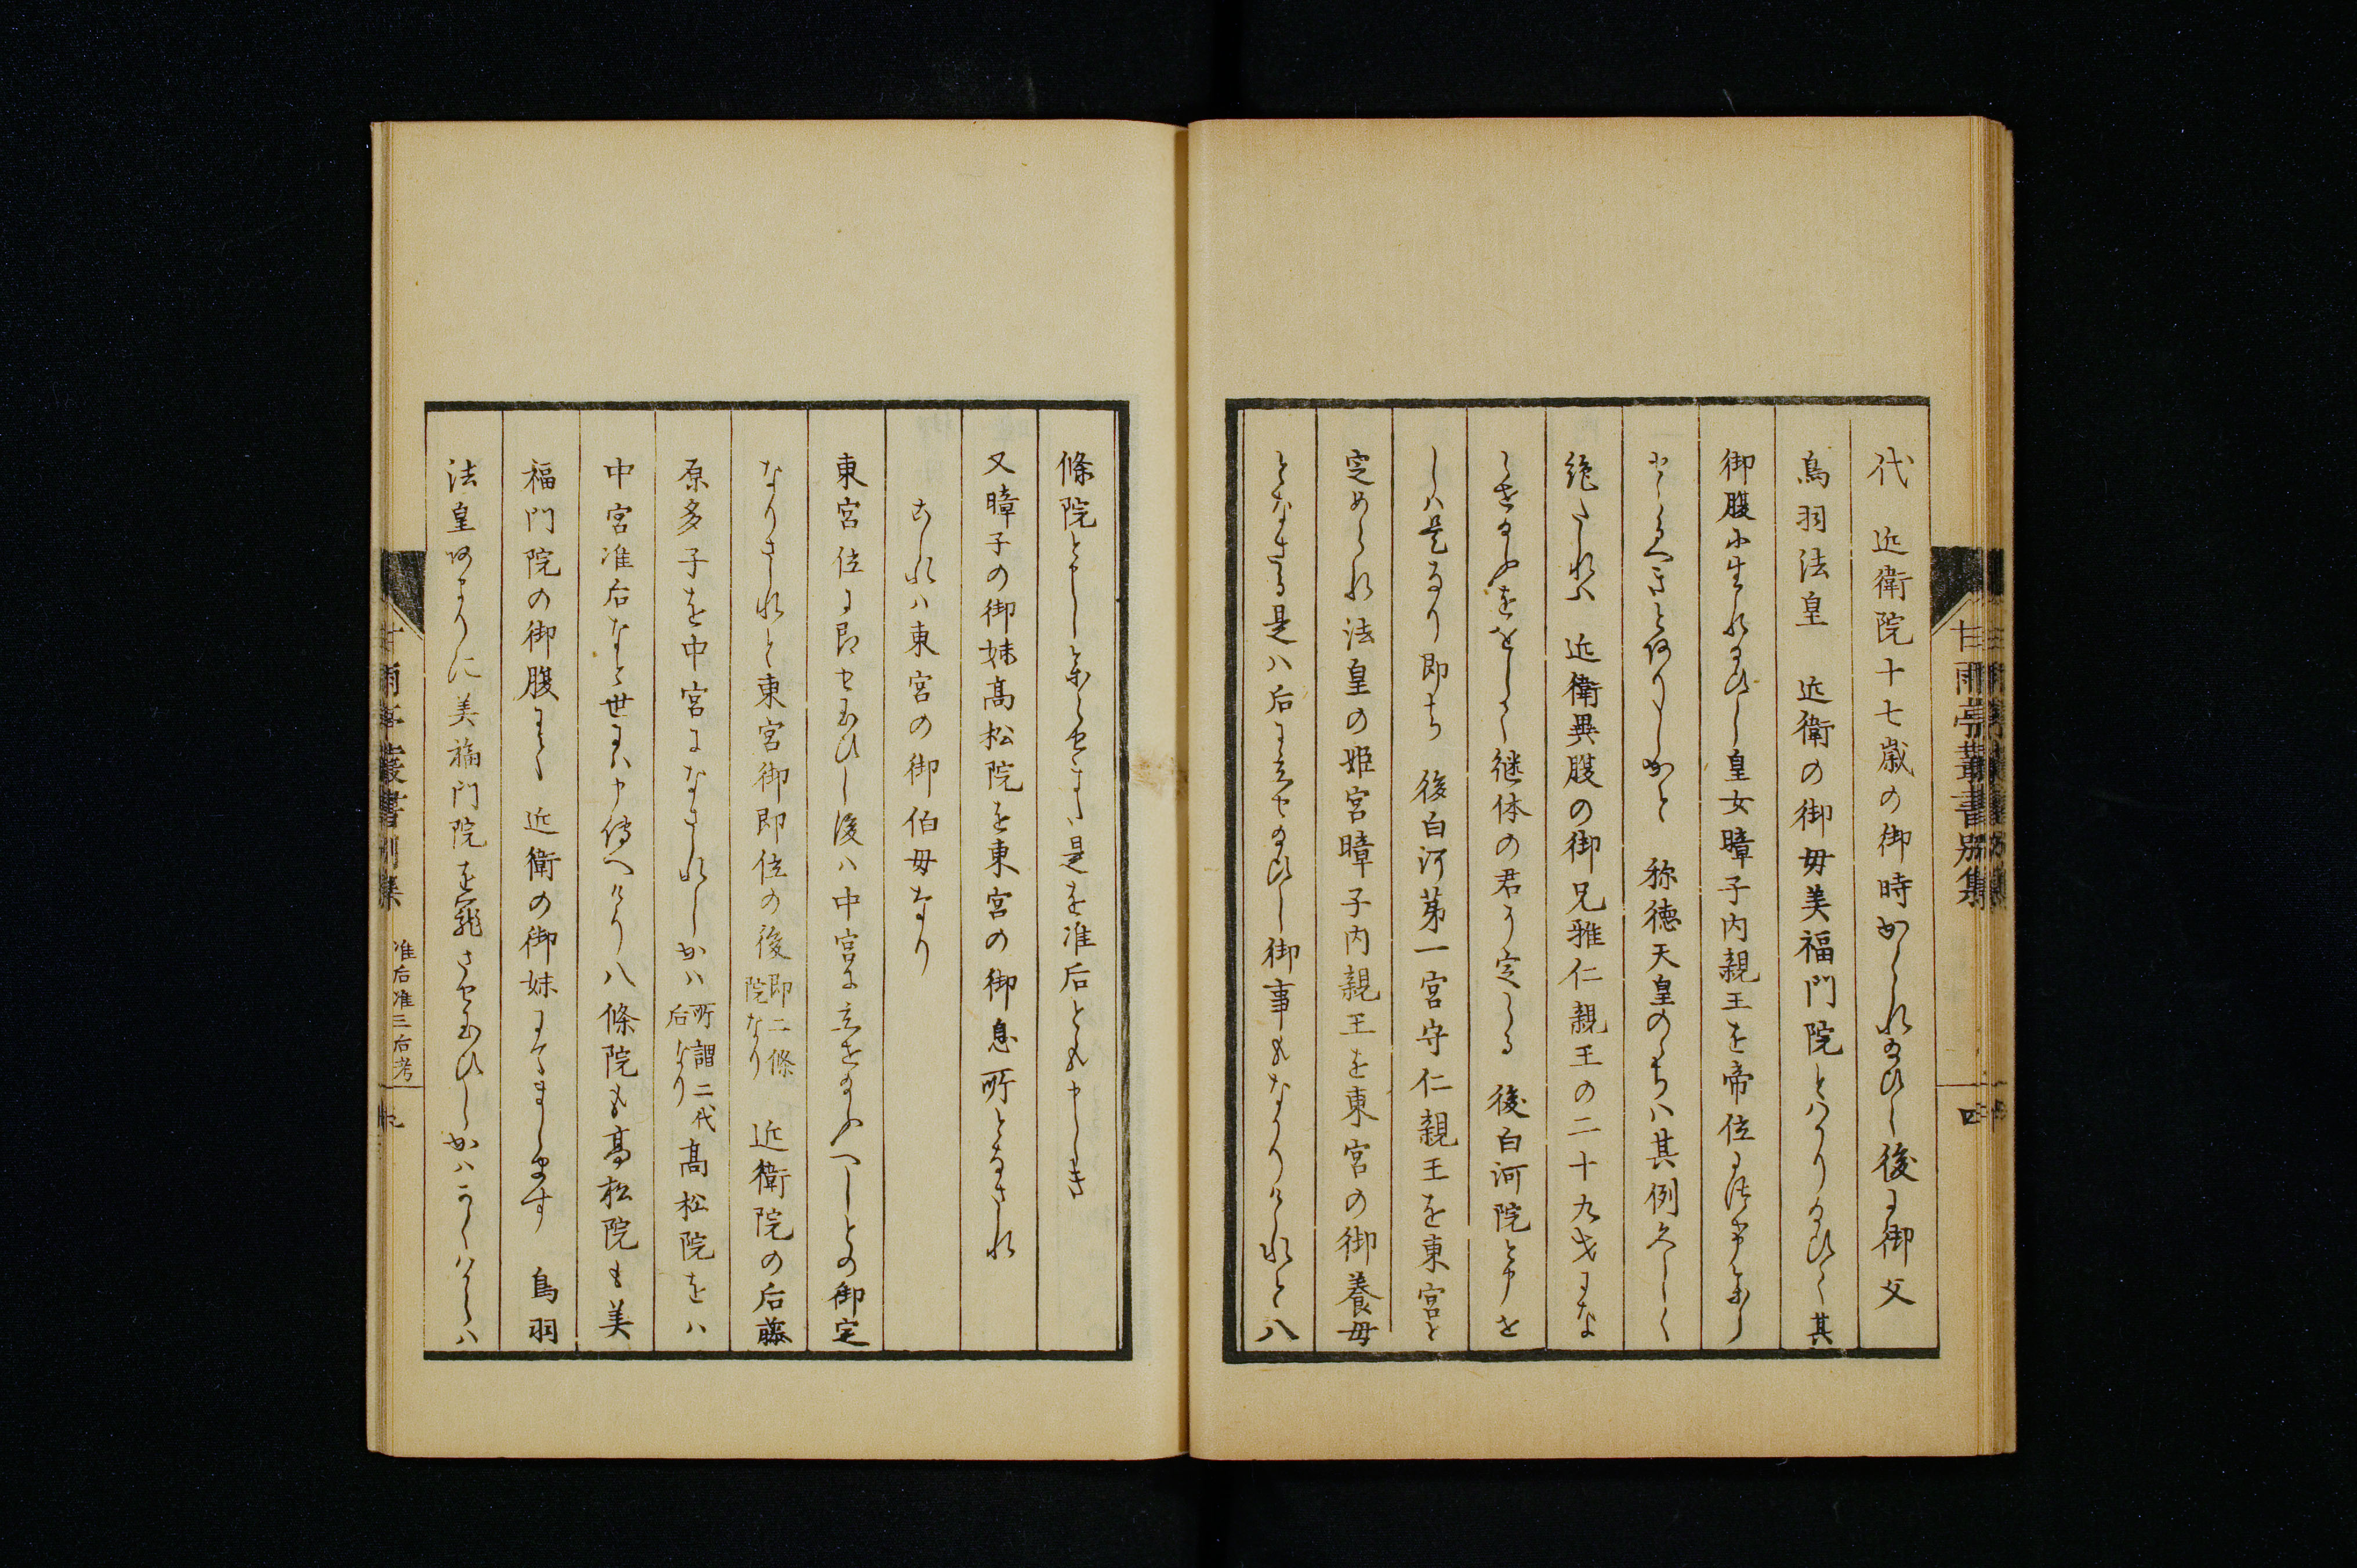 代　近衛院十七歳の御時かくれ給ひし後に御父
鳥羽法皇　近衛の御母美福門院とはかり給ひて其
御腹に生れ給ひし皇女暲子内親王を帝位に
へきと　称徳天皇のゝちハ其例久しく
絶たれハ　近衛異腹の御兄雅仁親王の二十九才にな
らせ給ふををして継体の君に定らる　後白河院と申せ
しハ是なり即ち　後白河第一宮守仁親王を東宮と
定められ法皇の姫宮暲子内親王を東宮の御養母
となさる是ハ后に立せ給ひし御事もなかりけれと八
條院と是を准后とも申しき
又暲子の御妹高松院を東宮の御息所となされ
これハ東宮の御伯母なり
東宮位に即せ給ひし後ハ中宮に立せ給ふへしとの御定
なりされと東宮御即位の後即二條院なり　近衛院の后藤
原多子を中宮になされしかハ所謂二代后なり高松院をハ
中宮准后なと世にハ申傳へけり八條院も高松院も美
福門院の御腹にて　近衛の御妹にてまします　鳥羽
法皇あまりに美福門院を寵させ給ひしかハかくハ
甘雨亭叢書別集
四
甘雨亭叢書別集　准后准三后考